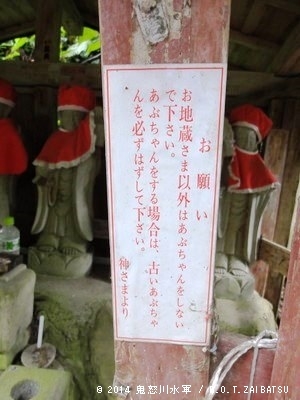 お願い
お地蔵さま以外はあぶちゃんをしない
で下さい。
あぶちゃんをする場合は、古いあぶちゃ
んを必ずはずして下さい。
神さまより
© 2014 鬼怒川水軍 / K.O.T.ZAIBATSU